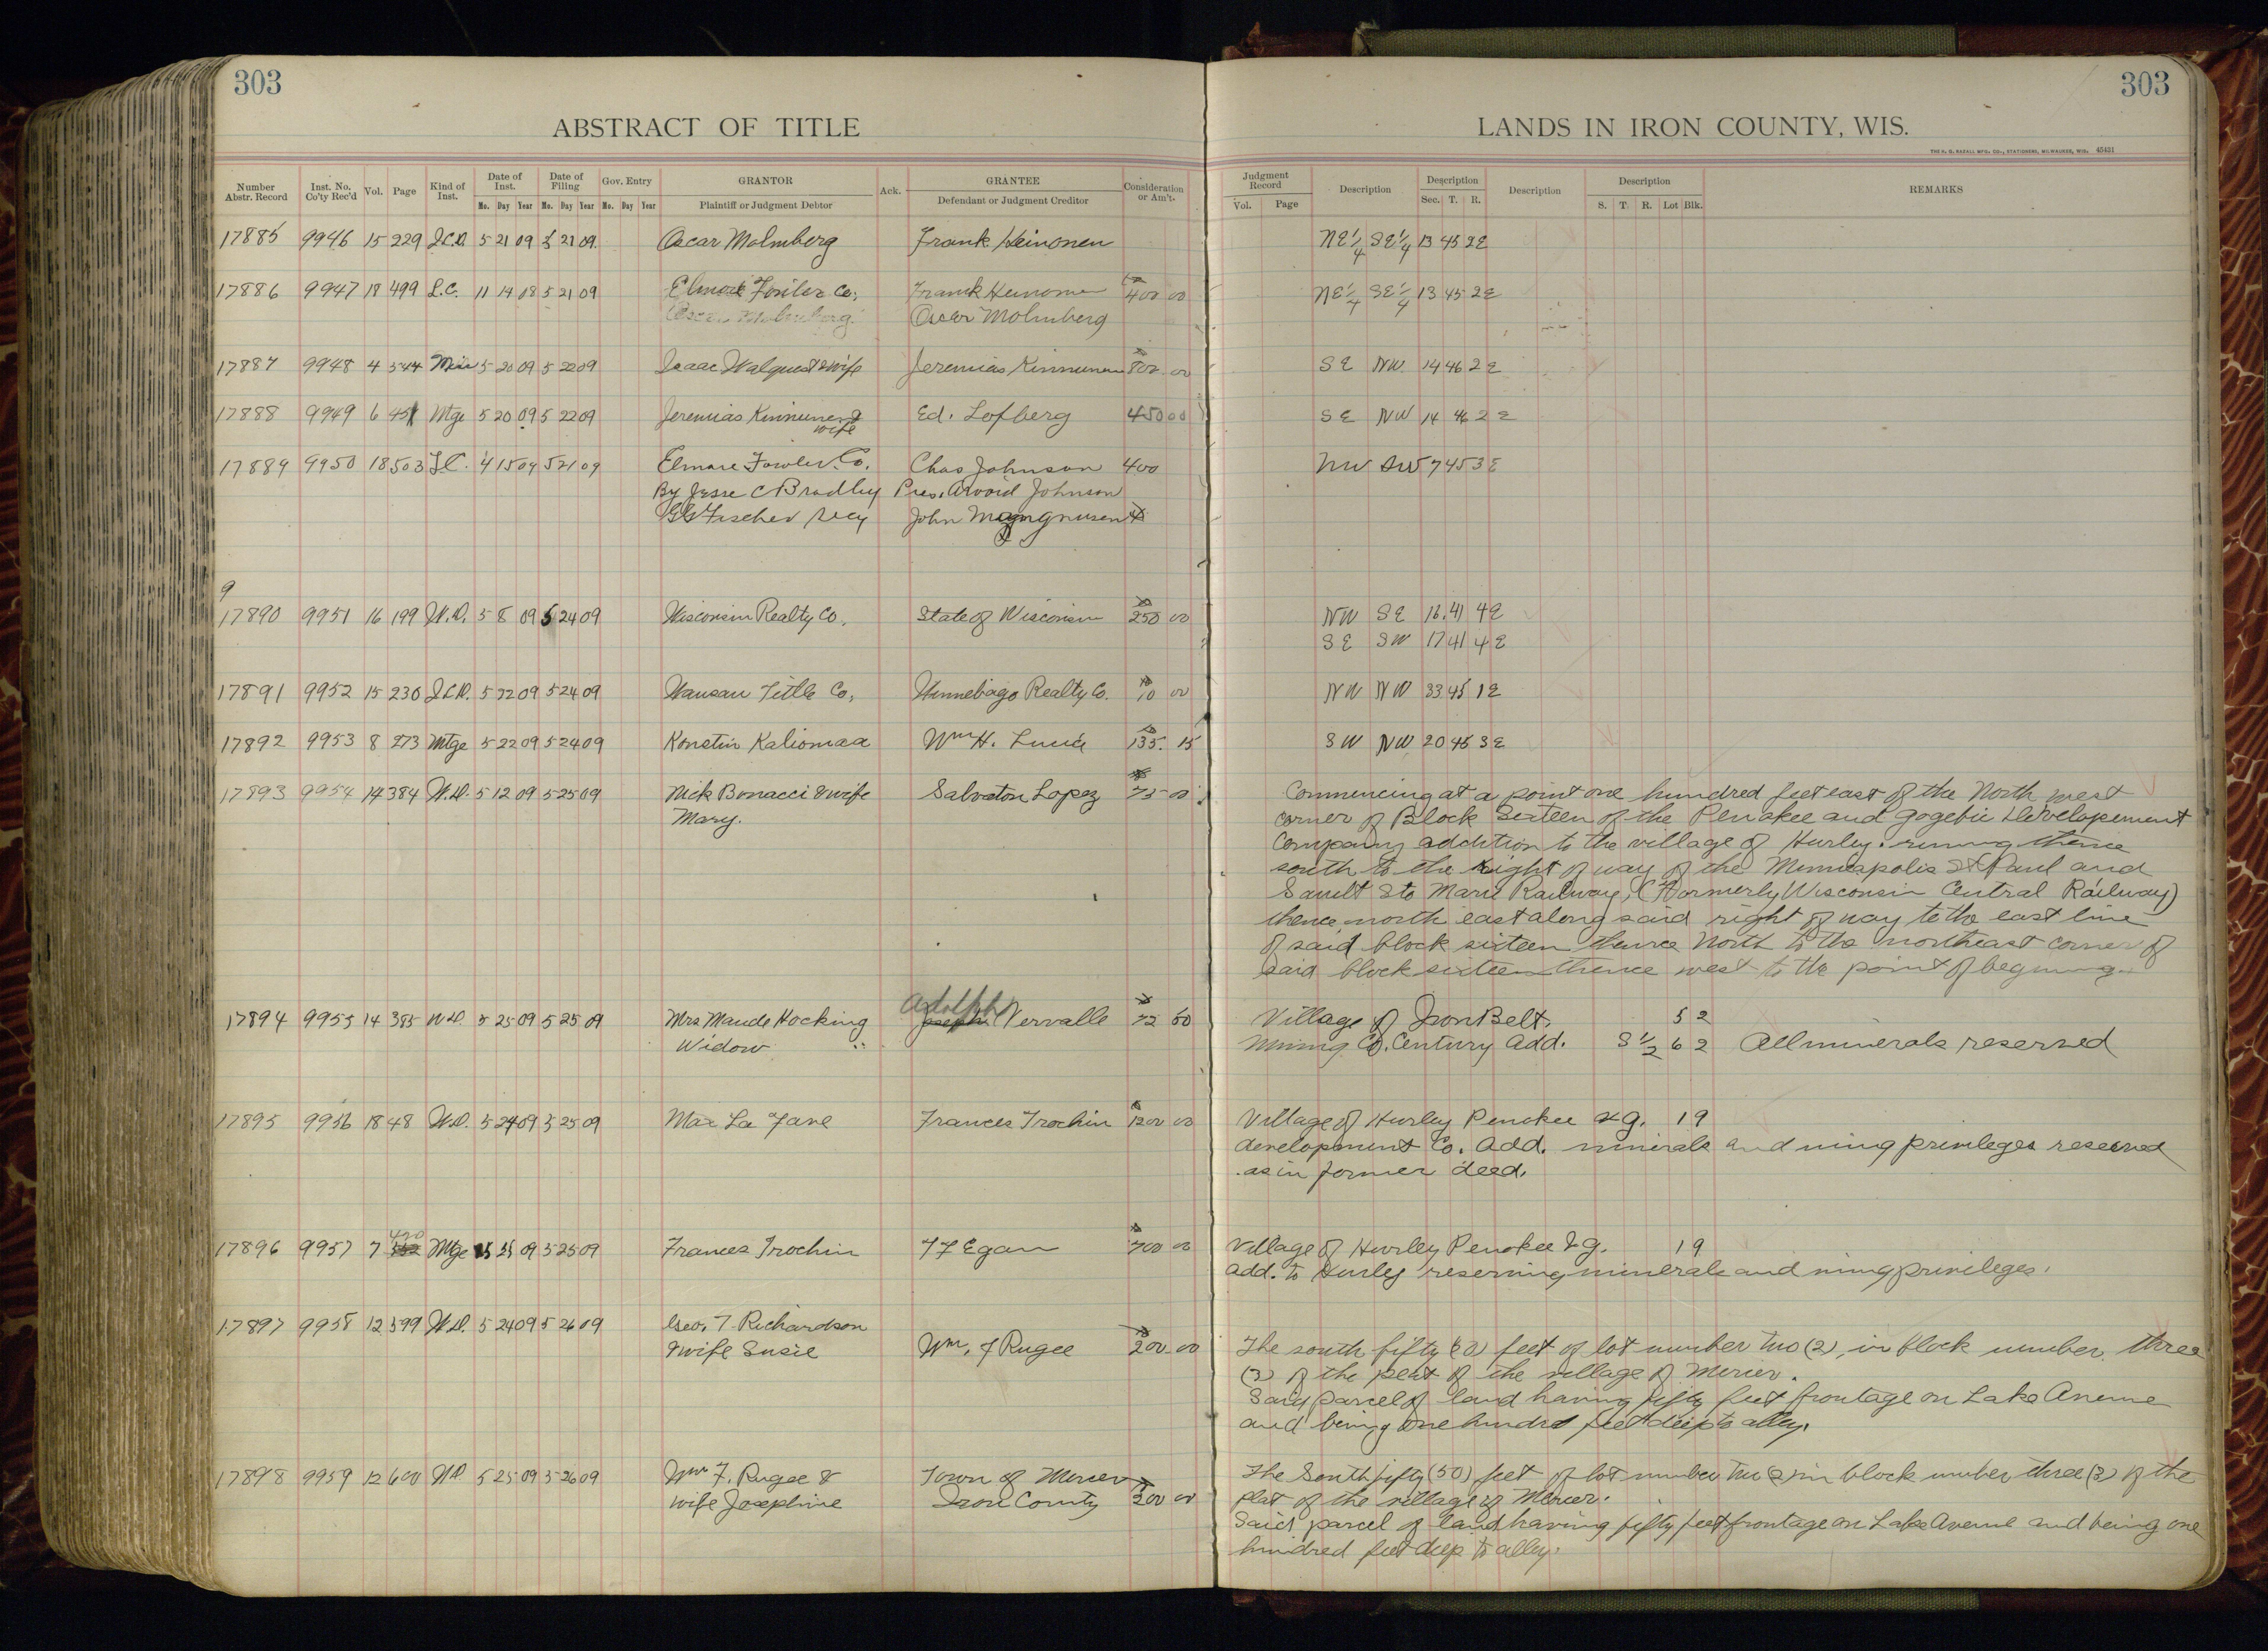 303
303
ABSTRACT OF TITLE
LANDS IN IRON COUNTY, WIS.
THE H. G. RAZALL MFG. CO., STATIONERS, MILWAUKEE, WIS. 45431
Number Abstr. Record Inst. No. Co'ty Rec'd Vol. Page Kind of Inst. Date of Inst. Mo. Day Year Date of Filing Mo. Day Year Gov. Entry Mo. Day Year GRANTOR Plaintiff or Judgment Debtor Ack. GRANTEE Defendant or Judgment Creditor Consideration or Am't.
Judgment Record Vol. Page Description Description Sec. T. R. Description Description S. T. R. Lot Blk. REMARKS
17885 9946 15 229 5 21 09 5 21 09 Oscar Molmberg Frank Heinonen NE1/4 SE1/4 13 45 2E
17886 9947 18 499 L.C. 11 14 08 5 21 09 Elmore Fowler Co., Frank Heinonen 400 00 NE1/4 SE1/4 13 45 2E
Oscar Molmberg Oscar Molmberg
17887 9948 4 544 5 20 09 5 22 09 Isaac Walquest & wife Jeremias Kinnunen 800 00 SE NW 14 46 2E
17888 9949 6 451 Mtge 5 20 09 5 22 09 Jeremias Kinnunen & Ed. Lofberg 450 00 SE NW 14 46 2E
wife
17889 9950 18 503 L.C. 4 15 09 5 21 09 Elmore Fowler Co. Chas Johnson 400 NW SW 7 45 3E
By Jesse C Bradley Pres. Arvid Johnson
GG Fischer Secy John Magnusen
9
17890 9951 16 199 W.D. 5 8 09 5 24 09 Wisconsin Realty Co. State of Wisconsin 250 00 NW SE 16 41 4E
SE SW 17 41 4E
17891 9952 15 230 5 22 09 5 24 09 Wausau Title Co, Winnebago Realty Co. 10 00 NW NW 33 45 1E
17892 9953 8 273 Mtge 5 22 09 5 24 09 Konstin Kaliomaa Wm H. Lucia 135. 15 SW NW 20 45 3E
17893 9954 14 384 W.D. 5 12 09 5 25 09 Nick Bonacci & wife Salvaton Lopez 75 00 Commencing at a point one hundred feet east of the North west
Mary. corner of Block Sixteen of the Penokee and Gogebic Developement
Company addition to the village of Hurley. runing thence
south to the right of way of the Minneapolis St Paul and
Sault Ste Marie Railway, (Formerly Wisconsin Central Railway)
thence north east along said right of way to the east line
of said block sixteen thence North to the northeast corner of
said block sixteen thence west to the point of begining.
17894 9955 14 385 W.D. 5 25 09 5 25 09 Mrs Maude Hocking Adolph Joseph Vervalle 72 50 Village of Iron Belt. 5 2
Widow Mining Co. Century Add. S 1/2 6 2 All minerals reserved
17895 9956 18 48 W.D. 5 24 09 5 25 09 Max La Fave Frances Trochin 1200 00 Village of Hurley Penokee & G. 19
development Co. Add. minerals and ming privileges reserved
as in former deed.
17896 9957 7 420 Mtge 5 25 09 5 25 09 Frances Trochin T F Egan 700 00 Village of Hurley Penokee & G. 19
Add. to Hurley reserving minerals and ming privileges.
17897 9958 12 599 W.D. 5 24 09 5 26 09 Geo. T. Richardson
& wife Susie Wm. F Rugee 200 00 The south fifty (50) feet of lot number two (2), in block number three
(3) of the peat of the village of Mercer.
Said parcel of land having fifty feet frontage on Lake Avenue
and being one hundred feet deep to alley.
17898 9959 12 600 WD 5 25 09 5 26 09 Wm F. Rugee & Town of Mercer The South fifty (50) feet of lot number two (2) in block number three (3) of the
wife Josephine Iron County 300 00 plat of the village of Mercer.
Said parcel of land having fifty feet frontage on Lake Avenue and being one
hundred feet deep to alley.